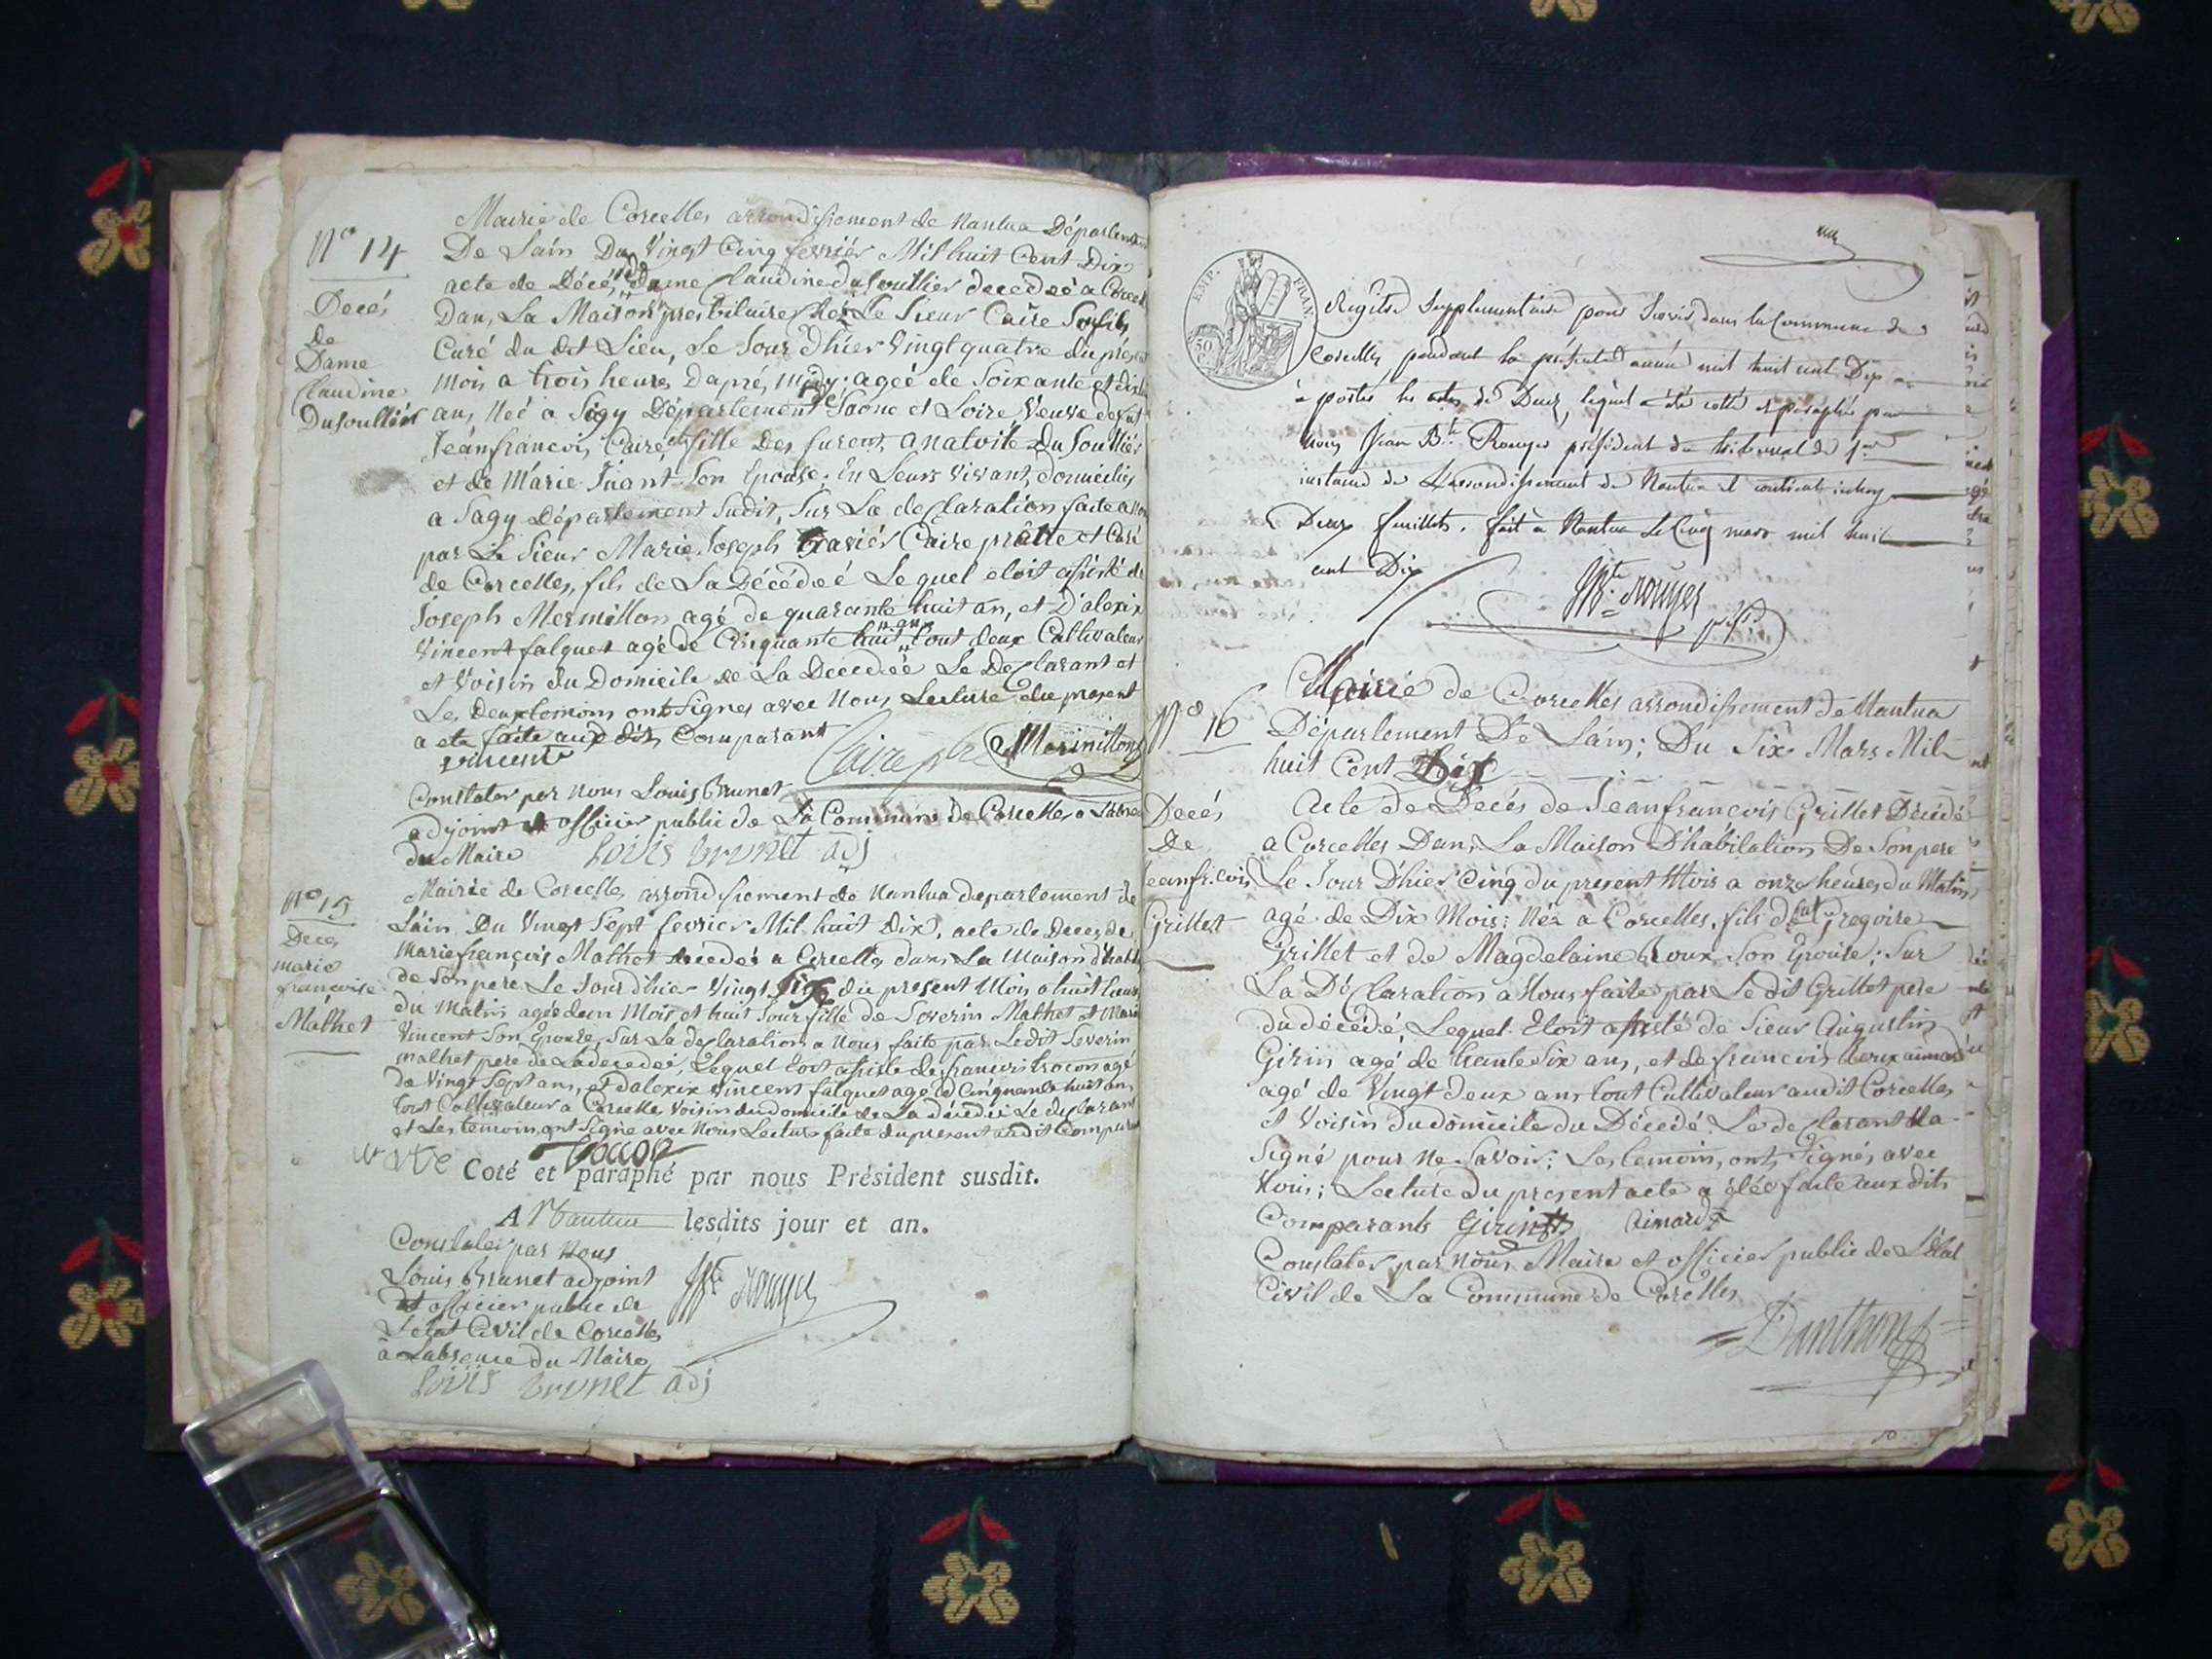 Mairie de Corcelles arrondissement de Nantua Département
N° 14
De Lain Du Vingt Cinq fevrier Mil huit Cent Dix
acte de Décé, de dame Claudine duSoullier decedeé a Corcel
Decés
de
Dame
Claudine
DuSoulliér
Dans La Maison presbiteraire Chéz Le Sieur Caire Son fils
Curé du dit Lieu, Le Jour d'hier Vingt quatre du présent
mois a trois heures Daprés midy; ageé de Soixante et dix
ans, Neé a Sagy Département de Saône et Loire Veuve de
Jeanfrancois Caire, et fille Des furent anatoile Du Soulliér
et de Marie Son Epouse; En Leurs vivant, domiciliés
a Sagy Département Sudit, Sur La declaration faite a nou
par Le Sieur Marie Joseph Xaviér Caire prêtre et Curé
de Corcelles, fils de La Décédeé Le quel etoit assisté de
Joseph Mermillon agé de quarante huit an, et D'alexix
Vincent falquet agé de Cinquante huit ans tout deux Cultivateur
et Voisin du Domicile de La Decedeé Le Declarant et
Les deux temoins ont Signes avec Nous Lecture du present
a eté faite aux dits Comparant
vincent Caire ptre Merimillon
Constater par nous Louis Brunet
adjoint et officier public de La Commune de Corcelles a Labsen
du Maire Louis brunet adj
N° 15
Deces
marie
françoise
Mathet
Mairie de Corcelles arrondissement de Nantua departement de
Lain Du Vingt Sept fevrier Mil huit Dix, acte de Deces de
Mariefrançois Mathet decedeé a Corcelles dans La Maison d'habit
de Son pere Le Jour d'hier Vingt Six du present Mois a huit heures
du Matin ageé dun Mois et huit Jour fille de Severin Mathet et Marie
Vincent Son Epouse, Sur La declaration a nous faite par Ledit Severin
mathet pere de Ladecedeé, Lequel etoit assisté de francois trocon agé
de Vingt Sept ans, et d'alexix Vincent falquet agé de Cinquante huit ans
tout Cultivateur a Corcelle Voisin du domicile de La décedeé Le declarant
et Les temoins ont Signe avec Nous Lecture faite du present audit Compar
trocon
Coté et paraphé par nous Président susdit.
A Nantua lesdits jour et an.
Constater par Nous
Louis Brunet adjoint
et officier public de
Létat Civil de Corcelles
à Labsence du Maire
Jbte Rouyer
Louis brunet adj
EMP. FRAN.
50
C.
Régistre Supplémentaire pour Servir dans la Commune de
Corcelles pendant la présente année mil huit cent Dix
à porter les actes de Decez, lequel a été coté et paraphé par
nous Jean Bte Rouyer président du tribunal de 1ere
instance de Larrondissement de Nantua et contient
Deux feuillets. fait à Nantua Le Cinq mars mil huit
cent Dix
JBte Rouyer
N° 16
Mairie de Corcelles arrondissement de Nantua
Département De Lain; Du Six Mars Mil
huit Cent Dix
Decés
De
Jeanfr.cois
Grillet
Acte de Decés de Jeanfrançois Grillet Décédé
a Corcelles Dans La Maison D'habitation De Son pere
Le Jour D'hier Cinq du present Mois a onze heures du Matin
agé de Dix Mois; Née a Corcelles, fils de Gregoire
Grillet et de Magdelaine Roux Son Epouse; Sur
La Déclaration a Nous faite par Le dit Grillet pere
du décédé, Lequel Etoit assisté de Sieur Augustin
Girin agé de trante Six ans, et de francois
agé de Vingt deux ans tout Cultivateur audit Corcelles
et Voisin du domicile du Décédé. Le declarant Na
Signé pour Ne Savoir; Les temoins, ont Signés avec
Nous; Lecture du present acte a étée faite aux dits
Comparants Girin Aimard
Constater par nous Maire et officier public de Létat
Civil de La Commune de Corcelles
Danthon